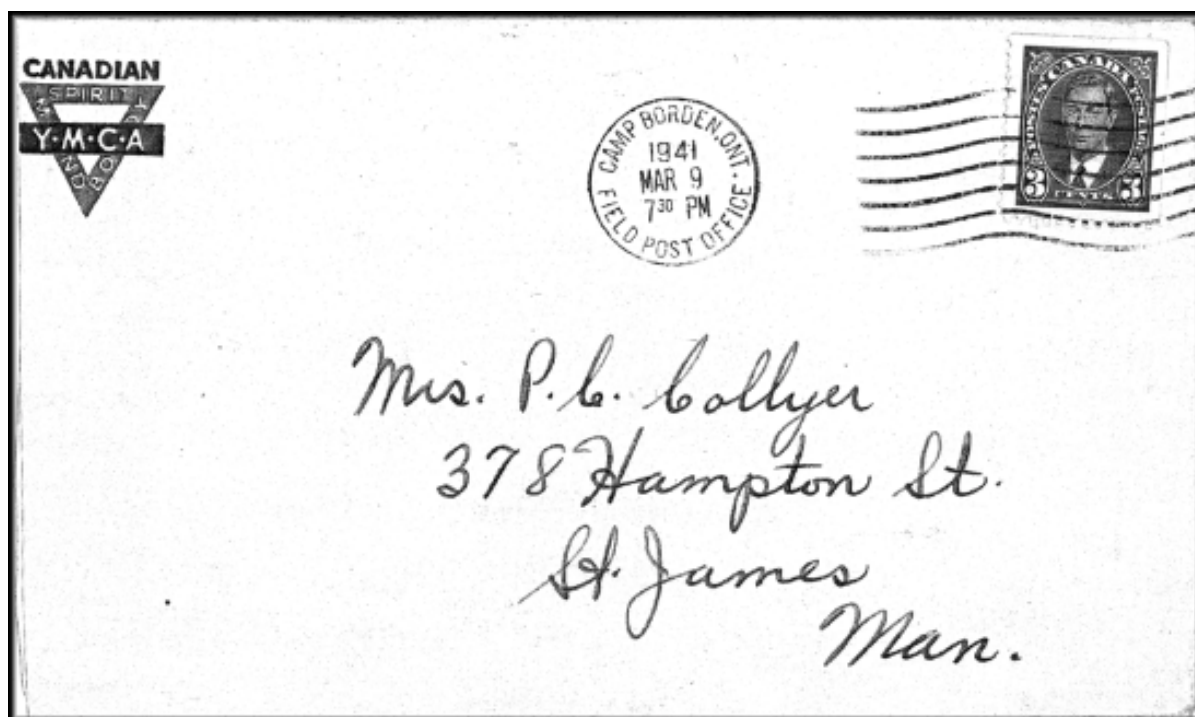 CANADIAN
SPIRIT
MIND
BODY
Y·M·C·A
CAMP BORDEN, ONT.
1941
MAR 9
7³⁰ PM
FIELD POST OFFICE
POSTES CANADA POSTAGE
3 CENTS 3
Mrs. P.C. Collyer
378 Hampton St.
St. James
Man.